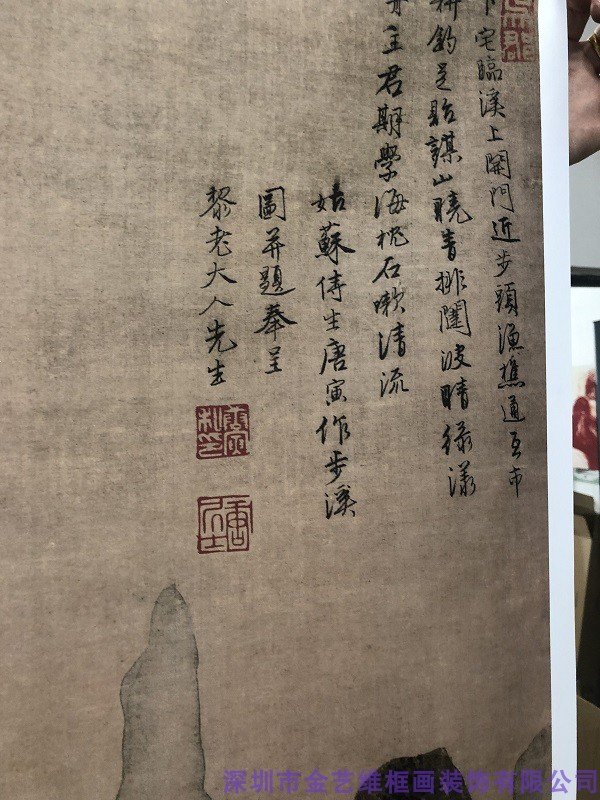 卜宅臨溪上開門近步頭漁樵通互市
耕釣是貽謀山曉青排闥波晴綠漾
舟主君期學海枕石漱清流
姑蘇侍生唐寅作步溪
圖并題奉呈
黎老大人先生
唐居士
深圳市金艺维框画装饰有限公司